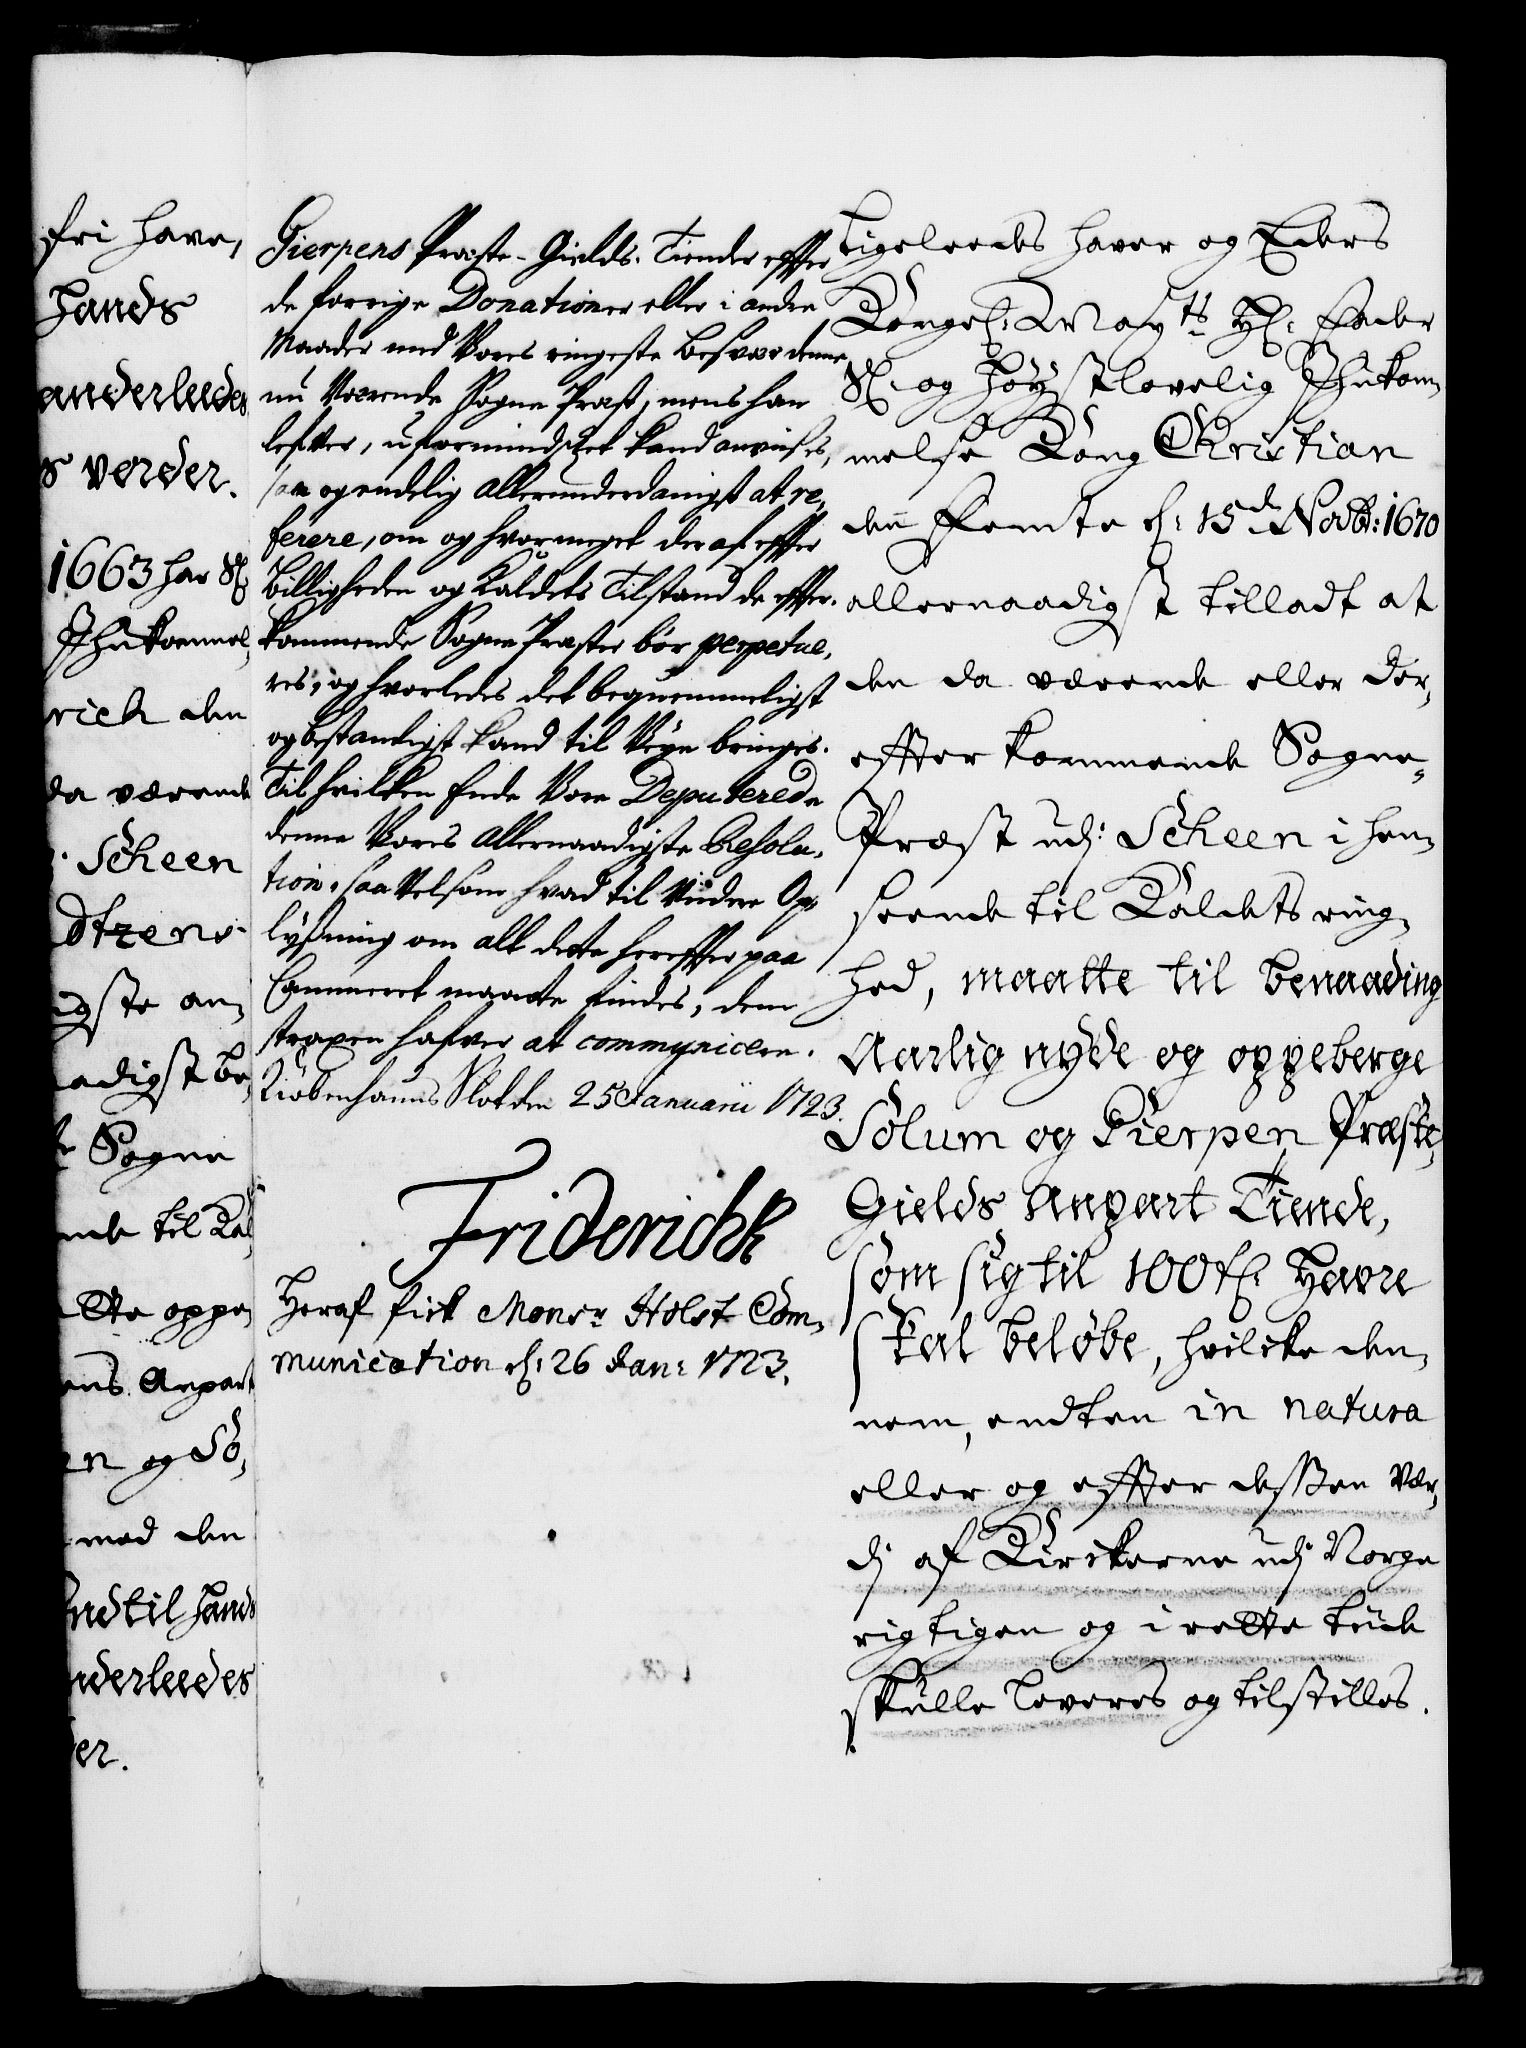 fri have,
hands
anderleedes
s vorder.
1663 har Sl:
Ihukommel,
rich den
da værende
Scheen
dtzens
igste an,
aadigst be,
Sogne
nde til Kal,
tte oppe,
ens Anpart
en og So,
med den
indtil hands
nderleedes
der.
Gierpens Præste-Gields Tiender effter
de forrige Donationer eller i andre
Maader med Vores ringeste Besvær denne
nu Værende Sogne Præst, mens han
lefver, uformindsket kand anvises,
saa og endelig allerunderdanigst at re,
ferere, om og hvormeget deraf effter
Billigheden og Kaldets Tilstand de effter,
kommende Sogne Præster bør perpetue,
res, og hvorledes det beqvemmeligst
og bestandigst kand til Veye bringes.
Til hvilken Ende Vore Deputerede
denne Vores allernaadigste Resolu,
tion, saavelsom hvad til Viidere Op,
lysning om alt dette hereffter paa
Cammeret maatte findes, dem
strapen hafver at communicere.
Kiøbenhauns Slot den 25 Januarii 1723.
Friderich R
Heraf fick Monsr Holst Com,
munication d: 26 Jan: 1723.
Ligeleedes haver og Eders
Kongel: Mayts H: Fader
Sl. og Høystlovelig Ihukom,
melse Kong Christian
den Femte d: 15de Novbr: 1670
allernaadigst tilladt at
den da værende eller der,
effter kommende Sogne,
Præst udj Scheen i hen,
seende til Kaldets ring,
hed, maatte til benaading
Aarlig nyde og oppeberge
Solum og Gierpen Præste,
Gields Anpart Tiende,
som sig til 100 tr: Havre
skal beløbe, hvilcke den,
nem, endten in natura
eller og effter dessen Vær,
dj af Kirckerne udj Norge
rigtigen og i rette tiide
skulle leveres og tilstilles.